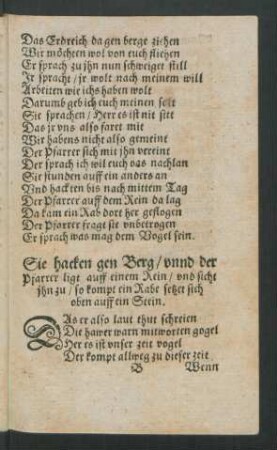 Das Erdreich da gen berge ziehen
Wir möchten wol von euch fliehen
Er sprach zu jhn nun schweiget still
Jr sprache / jr wolt nach meinem will
Arbeiten wie ichs haben wolt
Darumb geb ich euch meinen solt
Sie sprachen / Herr es ist nit sitt
Das jr vns also faret mit
Wir habens nicht also gemeint
Der Pfarrer sich mit jhn vereint
Der sprach ich wil euch das nachlan
Sie stunden auff ein anders an
Vnd hackten bis nach mittem Tag
Der Pfarrer auff dem Rein da lag
Da kam ein Rab dort her geflogen
Der Pfarrer fragt sie vnbetrogen
Er sprach was mag dem Vogel sein.
Sie hacken gen Berg / vnnd der
Pfarrer ligt auff einem Rein / vnd sicht
jhn zu / so kompt ein Rabe setzet sich
oben auff ein Stein.
DAs er also laut thut schreien
Die hawer warn mit worten gogel
Her es ist vnser zeit vogel
Der kompt allweg zu dieser zeit
B Wenn